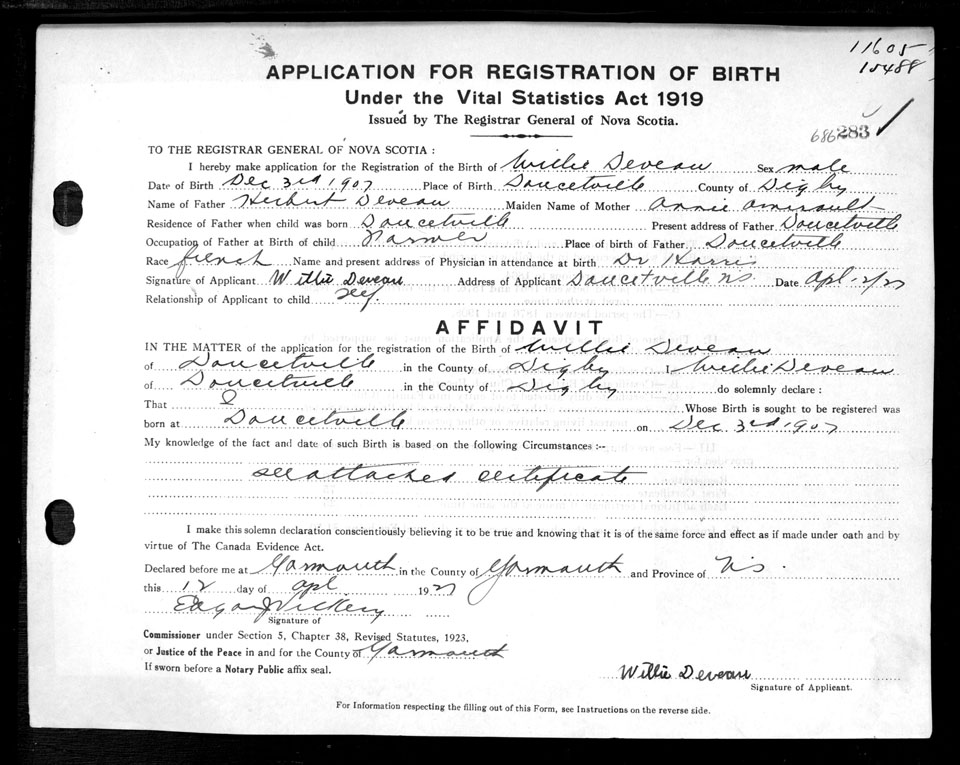 11605
15488
APPLICATION FOR REGISTRATION OF BIRTH
Under the Vital Statistics Act 1919
Issued by The Registrar General of Nova Scotia.
686283
TO THE REGISTRAR GENERAL OF NOVA SCOTIA :
I hereby make application for the Registration of the Birth of Willie Deveau Sex male
Date of Birth Dec 3rd 1907 Place of Birth Doucetville County of Digby
Name of Father Herbert Deveau Maiden Name of Mother Annie Amirault
Residence of Father when child was born Doucetville Present address of Father Doucetville
Occupation of Father at Birth of child Farmer Place of birth of Father Doucetville
Race french Name and present address of Physician in attendance at birth Dr Harris
Signature of Applicant Willie Deveau Address of Applicant Doucetville NS Date Apl 12/27
Relationship of Applicant to child self
AFFIDAVIT
IN THE MATTER of the application for the registration of the Birth of Willie Deveau
of Doucetville in the County of Digby I Willie Deveau
of Doucetville in the County of Digby do solemnly declare :
That I Whose Birth is sought to be registered was
born at Doucetville on Dec 3rd 1907
My knowledge of the fact and date of such Birth is based on the following Circumstances :--
see attached certificate
I make this solemn declaration conscientiously believing it to be true and knowing that it is of the same force and effect as if made under oath and by
virtue of The Canada Evidence Act.
Declared before me at Yarmouth in the County of Yarmouth and Province of NS.
this 12 day of apl 1927
Edgar J Vickery
Signature of
Commissioner under Section 5, Chapter 38, Revised Statutes, 1923,
or Justice of the Peace in and for the County of Yarmouth
If sworn before a Notary Public affix seal.
Willie Deveau
Signature of Applicant.
For Information respecting the filling out of this Form, see Instructions on the reverse side.